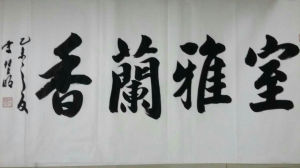 室雅蘭香
乙未之夏